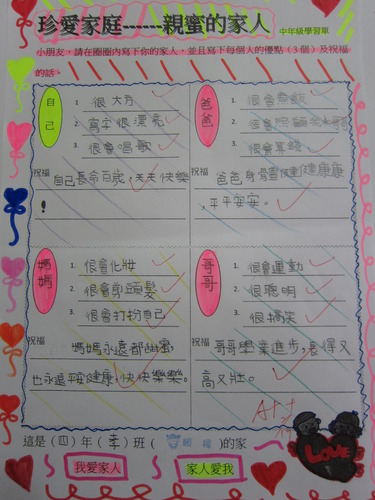 珍愛家庭------親蜜的家人 中年級學習單
小朋友，請在圈圈內寫下你的家人，並且寫下每個人的優點（3個）及祝福
的話。
自己
1. 很大方
2. 寫字很漂亮
3. 很會唱歌
祝福
自己長命百歲，天天快樂
！
爸爸
1. 很會煮飯
2.
3. 很會算錢
祝福
爸爸身體健健康康
，平平安安。
媽媽
1. 很會化妝
2. 很會剪頭髮
3. 很會打扮自己
祝福
媽媽永遠都
也永遠平安健康，快快樂樂。
哥哥
1. 很會運動
2. 很聰明
3. 很搞笑
祝福
哥哥學業進步，長得又
高又壯。
A++
這是（四）年（孝）班（ ）的家
我愛家人 家人愛我
LOVE